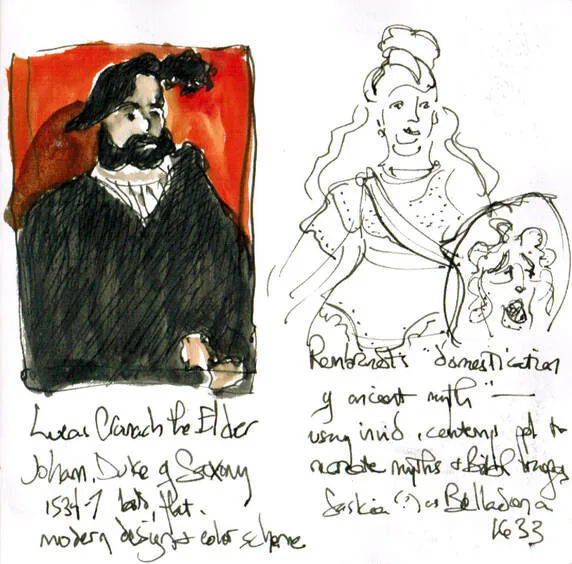 Lucas Cranach the Elder
Johann, Duke of Saxony
1534-7 bold, flat.
modern design + color scheme
Rembrandt's "domestication
of ancient myth" —
using , contemp ppl to
recreate myths +
Saskia (?) as Bellona
1633